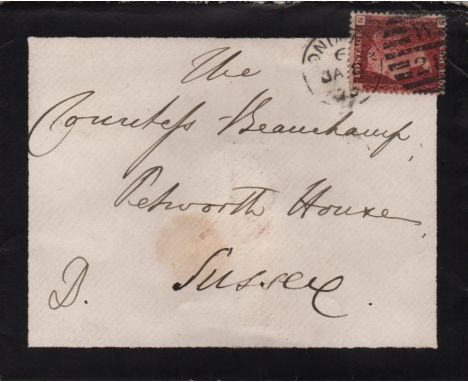 The
Countess Beauchamp,
Petworth House,
Sussex.
D.
POSTAGE
JA